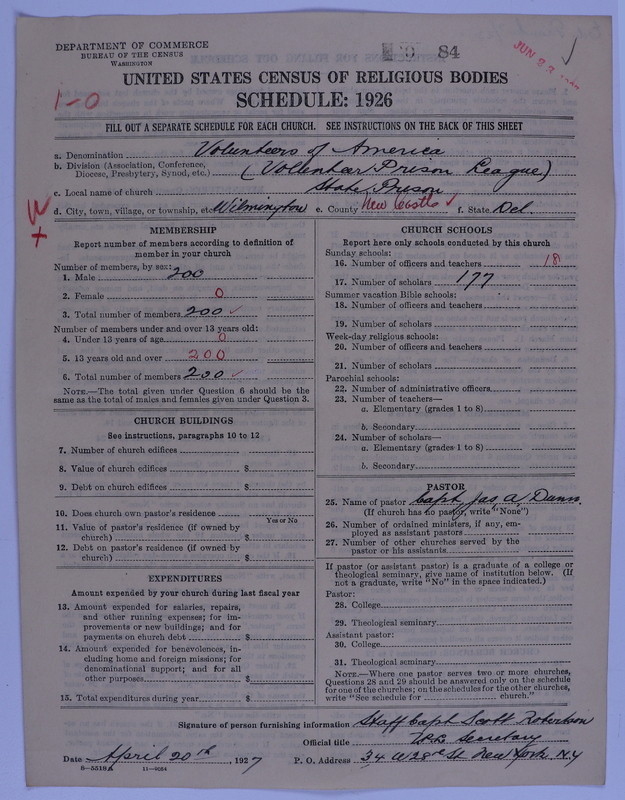 DEPARTMENT OF COMMERCE
BUREAU OF THE CENSUS
WASHINGTON
84
JUN 23
1-0
UNITED STATES CENSUS OF RELIGIOUS BODIES
SCHEDULE: 1926
FILL OUT A SEPARATE SCHEDULE FOR EACH CHURCH. SEE INSTRUCTIONS ON THE BACK OF THIS SHEET
a. Denomination Volunteers of America
b. Division (Association, Conference, Diocese, Presbytery, Synod, etc.) (Volunteer Prison League)
c. Local name of church State Prison
d. City, town, village, or township, etc. Wilmington e. County New Castle ✓ f. State Del.
W
+
MEMBERSHIP
Report number of members according to definition of
member in your church
Number of members, by sex:
1. Male 200
2. Female 0
3. Total number of members 200 ✓
Number of members under and over 13 years old:
4. Under 13 years of age 0
5. 13 years old and over 200
6. Total number of members 200 ✓
NOTE.—The total given under Question 6 should be the
same as the total of males and females given under Question 3.
CHURCH BUILDINGS
See instructions, paragraphs 10 to 12
7. Number of church edifices
8. Value of church edifices $
9. Debt on church edifices $
10. Does church own pastor's residence
Yes or No
11. Value of pastor's residence (if owned by
church) $
12. Debt on pastor's residence (if owned by
church) $
EXPENDITURES
Amount expended by your church during last fiscal year
13. Amount expended for salaries, repairs,
and other running expenses; for im-
provements or new buildings; and for
payments on church debt $
14. Amount expended for benevolences, in-
cluding home and foreign missions; for
denominational support; and for all
other purposes $
15. Total expenditures during year $
CHURCH SCHOOLS
Report here only schools conducted by this church
Sunday schools:
16. Number of officers and teachers 18
17. Number of scholars 177
Summer vacation Bible schools:
18. Number of officers and teachers
19. Number of scholars
Week-day religious schools:
20. Number of officers and teachers
21. Number of scholars
Parochial schools:
22. Number of administrative officers
23. Number of teachers—
a. Elementary (grades 1 to 8)
b. Secondary
24. Number of scholars—
a. Elementary (grades 1 to 8)
b. Secondary
PASTOR
25. Name of pastor Capt Jas A. Dunn.
(If church has no pastor, write "None")
26. Number of ordained ministers, if any, em-
ployed as assistant pastors
27. Number of other churches served by the
pastor or his assistants
If pastor (or assistant pastor) is a graduate of a college or
theological seminary, give name of institution below. (If
not a graduate, write "No" in the space indicated.)
Pastor:
28. College
29. Theological seminary
Assistant pastor:
30. College
31. Theological seminary
NOTE.—Where one pastor serves two or more churches,
Questions 28 and 29 should be answered only on the schedule
for one of the churches; on the schedules for the other churches,
write "See schedule for church."
Signature of person furnishing information Staff Capt Scott Robertson
Official title Secretary
Date April 20th, 1927 P. O. Address 34 W 28th St New York. N.Y
8-5518A 11-9064